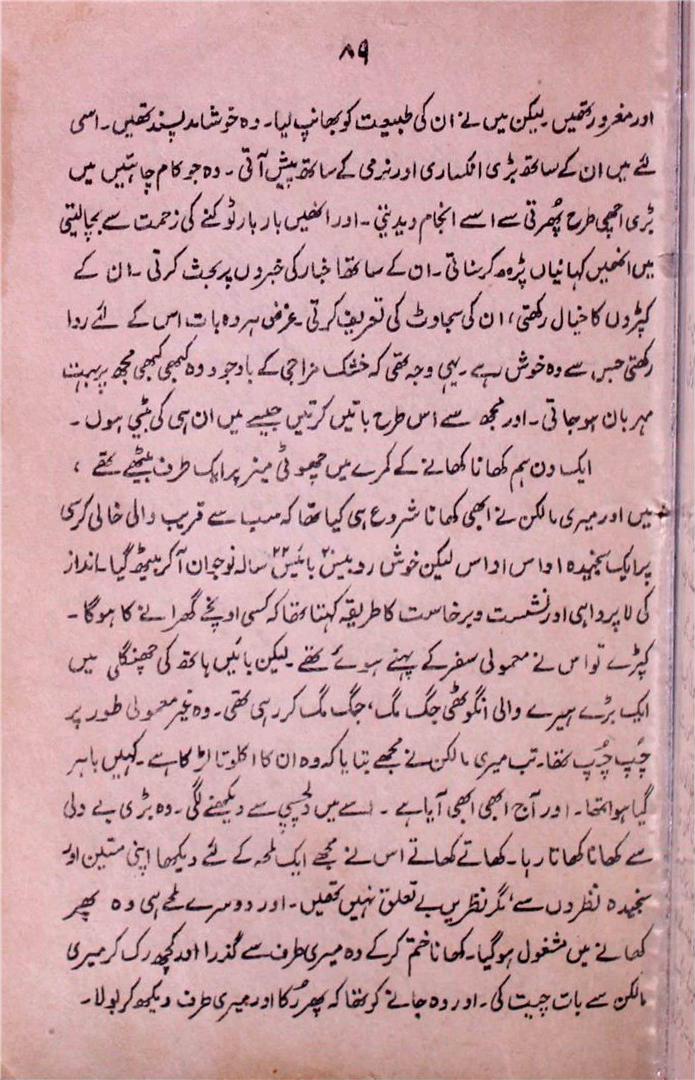 ۸۹
اور مغرور تھیں۔ لیکن میں نے ان کی طبیعت کو بھانپ لیا۔ وہ خوشامد پسند تھیں۔ اسی
لئے میں ان کے ساتھ بڑی انکساری اور نرمی کے ساتھ پیش آتی۔ وہ جو کام چاہتیں میں
بڑی اچھی طرح پھرتی سے اسے انجام دیدیتی۔ اور انھیں بار بار ٹوکنے کی زحمت سے بچا لیتی
میں انھیں کہانیاں پڑھ کر سناتی۔ ان کے ساتھ اخبار کی خبروں پر بحث کرتی۔ ان کے
کپڑوں کا خیال رکھتی، ان کی سجاوٹ کی تعریف کرتی۔ غرض ہر وہ بات اس کے لئے روا
رکھتی جس سے وہ خوش رہے۔ یہی وجہ تھی کہ خشک مزاجی کے باوجود وہ کبھی کبھی مجھ پر بہت
مہربان ہو جاتی۔ اور مجھ سے اس طرح باتیں کرتیں جیسے میں ان ہی کی بیٹی ہوں۔
ایک دن ہم کھانا کھانے کے کمرے میں چھوٹی میز پر ایک طرف بیٹھے تھے،
میں اور میری مالکن نے ابھی کھانا شروع ہی کیا تھا کہ سب سے قریب والی خالی کرسی
پر ایک سنجیدہ اداس اداس لیکن خوش رو بیس۲۰ بائیس۲۲ سالہ نوجوان آکر بیٹھ گیا۔ انداز
کی لاپرواہی اور نشست و برخاست کا طریقہ کہتا تھا کہ کسی اونچے گھرانے کا ہوگا۔
کپڑے تو اس نے معمولی سفر کے پہنے ہوئے تھے۔ لیکن بائیں ہاتھ کی چھنگلی میں
ایک بڑے ہیرے والی انگوٹھی جگ مگ، جگ مگ کر رہی تھی۔ وہ غیر معمولی طور پر
چُپ چُپ تھا۔ تب میری مالکن نے مجھے بتایا کہ وہ ان کا اکلوتا لڑکا ہے۔ کہیں باہر
گیا ہوا تھا۔ اور آج ابھی ابھی آیا ہے۔ اسے میں دلچسپی سے دیکھنے لگی۔ وہ بڑی بے دلی
سے کھانا کھاتا رہا۔ کھاتے کھاتے اس نے مجھے ایک لمحہ کے لئے دیکھا اپنی متین اور
سنجیدہ نظروں سے، مگر نظریں بے تعلق نہیں تھیں۔ اور دوسرے لمحے ہی وہ پھر
کھانے میں مشغول ہوگیا۔ کھانا ختم کرکے وہ میری طرف سے گذرا اور کچھ رک کر میری
مالکن سے بات چیت کی۔ اور وہ جانے کو تھا کہ پھر رُکا اور میری طرف دیکھ کر بولا۔